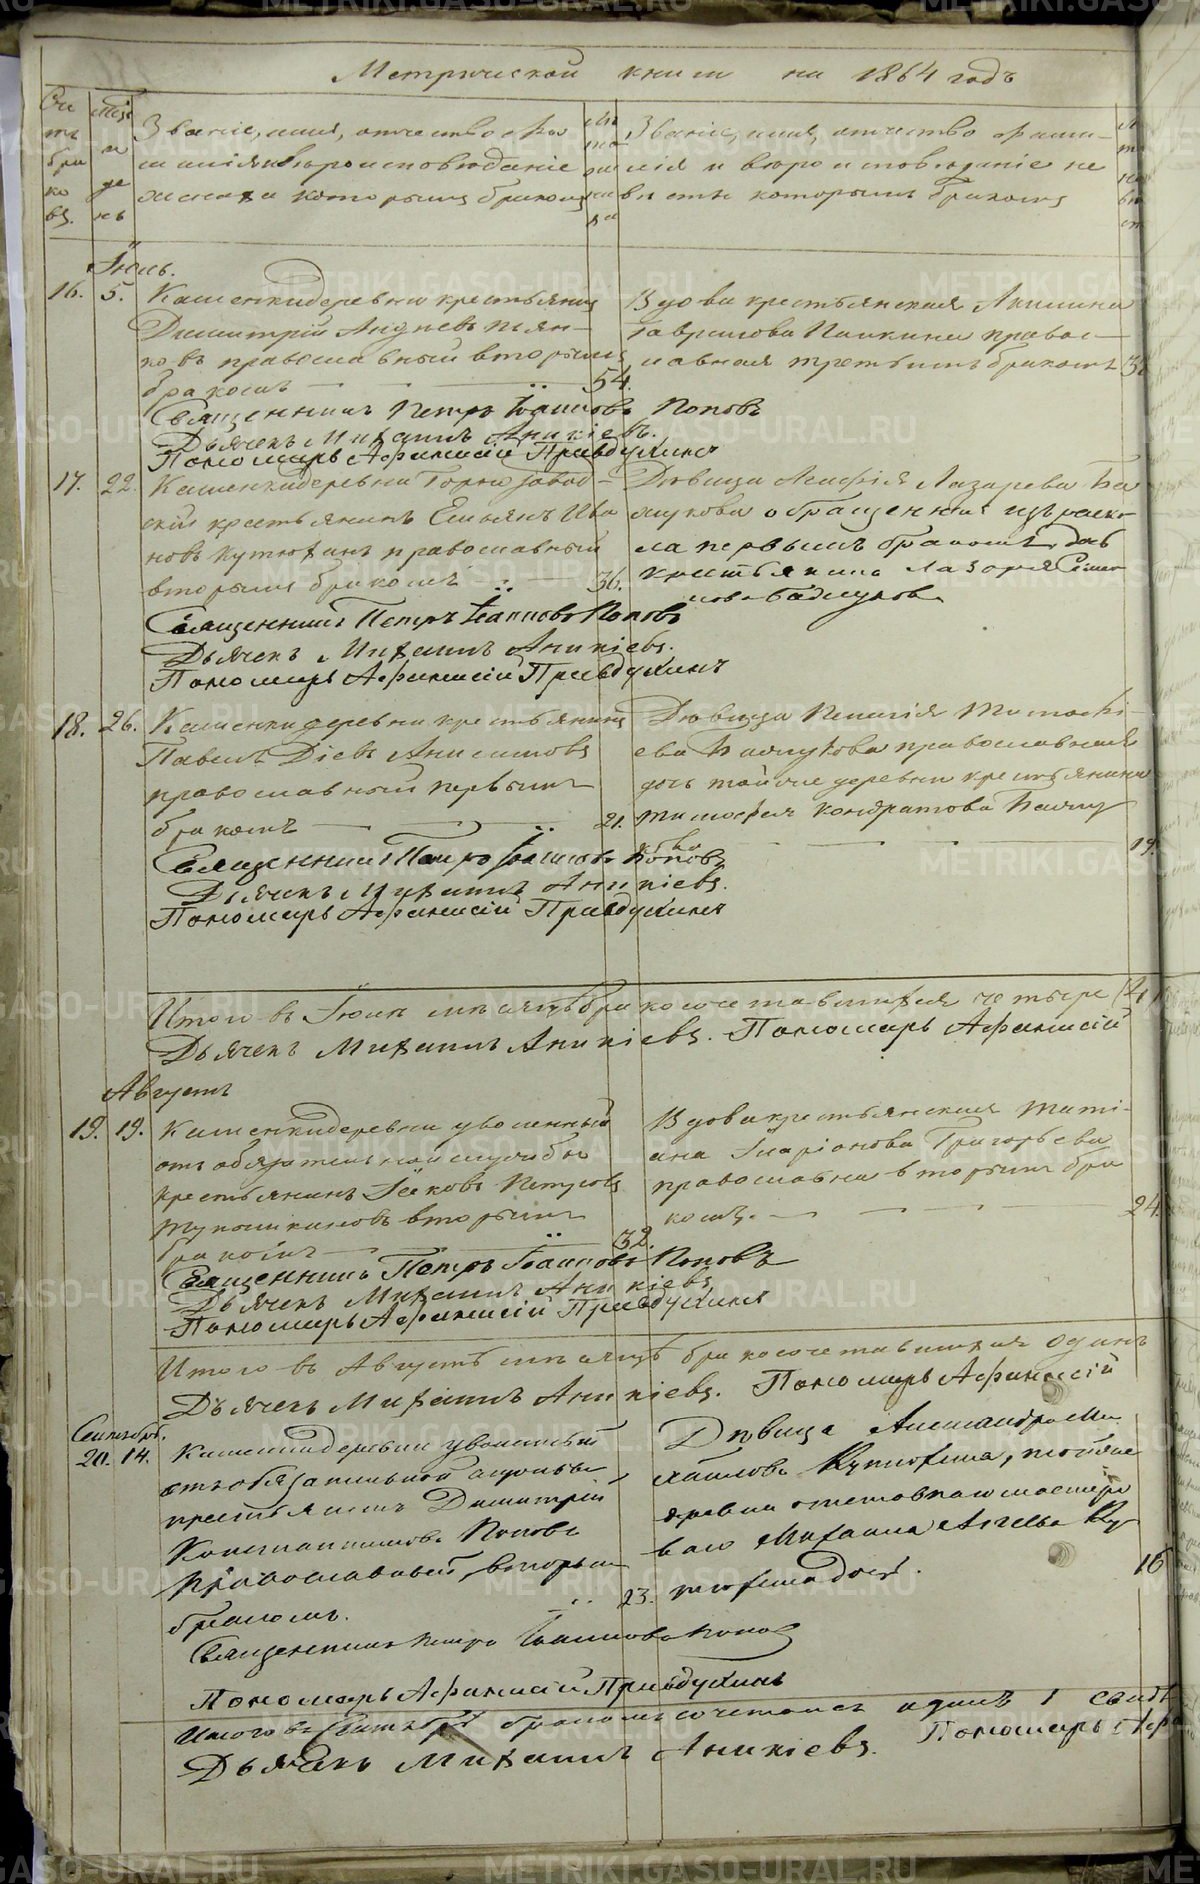 Метрической книги на 1864 годъ
Счи
тъ
бра
ко
въ.
Мѣся
и
де
нь
Званіе, имя, отчество фа
милія и вѣроисповѣданіе
жениха и которымъ бракомъ
Званіе, имя, отчество фами-
лія и вѣроисповѣданіе не
вѣсты которымъ бракомъ
Іюль.
16. 5. Каменки деревни крестьянинъ
Димитрій Андреевъ Пьян-
ковъ православный вторымъ
бракомъ 54.
Вдова крестьянская Акилина
Гаврилова Пашкина правос-
лавная третьимъ бракомъ
Священникъ Петръ Іоанновъ Поповъ
Дьячекъ Михаилъ Аникіевъ.
Пономарь Афанасій Правдухинъ
17. 22. Каменки деревни Горнозавод-
скій крестьянинъ Емельянъ Ива
новъ Кутюхинъ православный
вторымъ бракомъ 36.
Дѣвица Агафія Лазарева Ба
мукова обращенная изъ раско-
ла первымъ бракомъ дочь
крестьянина Лазаря Симо
нова Бамукова
Священникъ Петръ Іоанновъ Поповъ
Дьячекъ Михаилъ Аникіевъ.
Пономарь Афанасій Правдухинъ
18. 26. Каменки деревни крестьянинъ
Павелъ Діевъ Анисимовъ
православный первымъ
бракомъ 21.
Дѣвица Пелагія Тимофі-
ева православная
дочь той же деревни крестьянина
Тимофея Кондратова
кова 19.
Священникъ Петръ Іоанновъ Поповъ
Дьячекъ Михаилъ Аникіевъ.
Пономарь Афанасій Правдухинъ
Итого въ Іюлѣ мѣсяцѣ бракосочетавшихся четыре (4)
Дьячекъ Михаилъ Аникіевъ. Пономарь Афанасій
Августъ
19. 19. Каменки деревни уволенный
отъ обязательной службы
крестьянинъ Іаковъ Петровъ
вторымъ
бракомъ 32.
Вдова крестьянская Таті-
ана Иларіонова Григорьева
православна вторымъ бра
комъ. 24.
Священникъ Петръ Іоанновъ Поповъ
Дьячекъ Михаилъ Аникіевъ
Пономарь Афанасій Правдухинъ
Итого въ Августѣ мѣсяцѣ бракосочетавшихся одинъ
Дьячекъ Михаилъ Аникіевъ. Пономарь Афанасій
Сентябрь.
20. 14. Каменки деревни уволенный
отъ обязательной службы
крестьянинъ Димитрій
Константиновъ Поповъ
православный, вторымъ
бракомъ. 23.
Дѣвица Александра Ми
хайлова Кутюхина, той же
деревни отставнаго мастеро
ваго Михаила Ку
тюхина дочь. 16
Священникъ Петръ Іоанновъ Поповъ
Пономарь Афанасій Правдухинъ
Итого въ Сентябрѣ бракомъ сочетался одинъ 1
Дьячекъ Михаилъ Аникіевъ. Пономарь Афа
METRIKI.GASO-URAL.RU